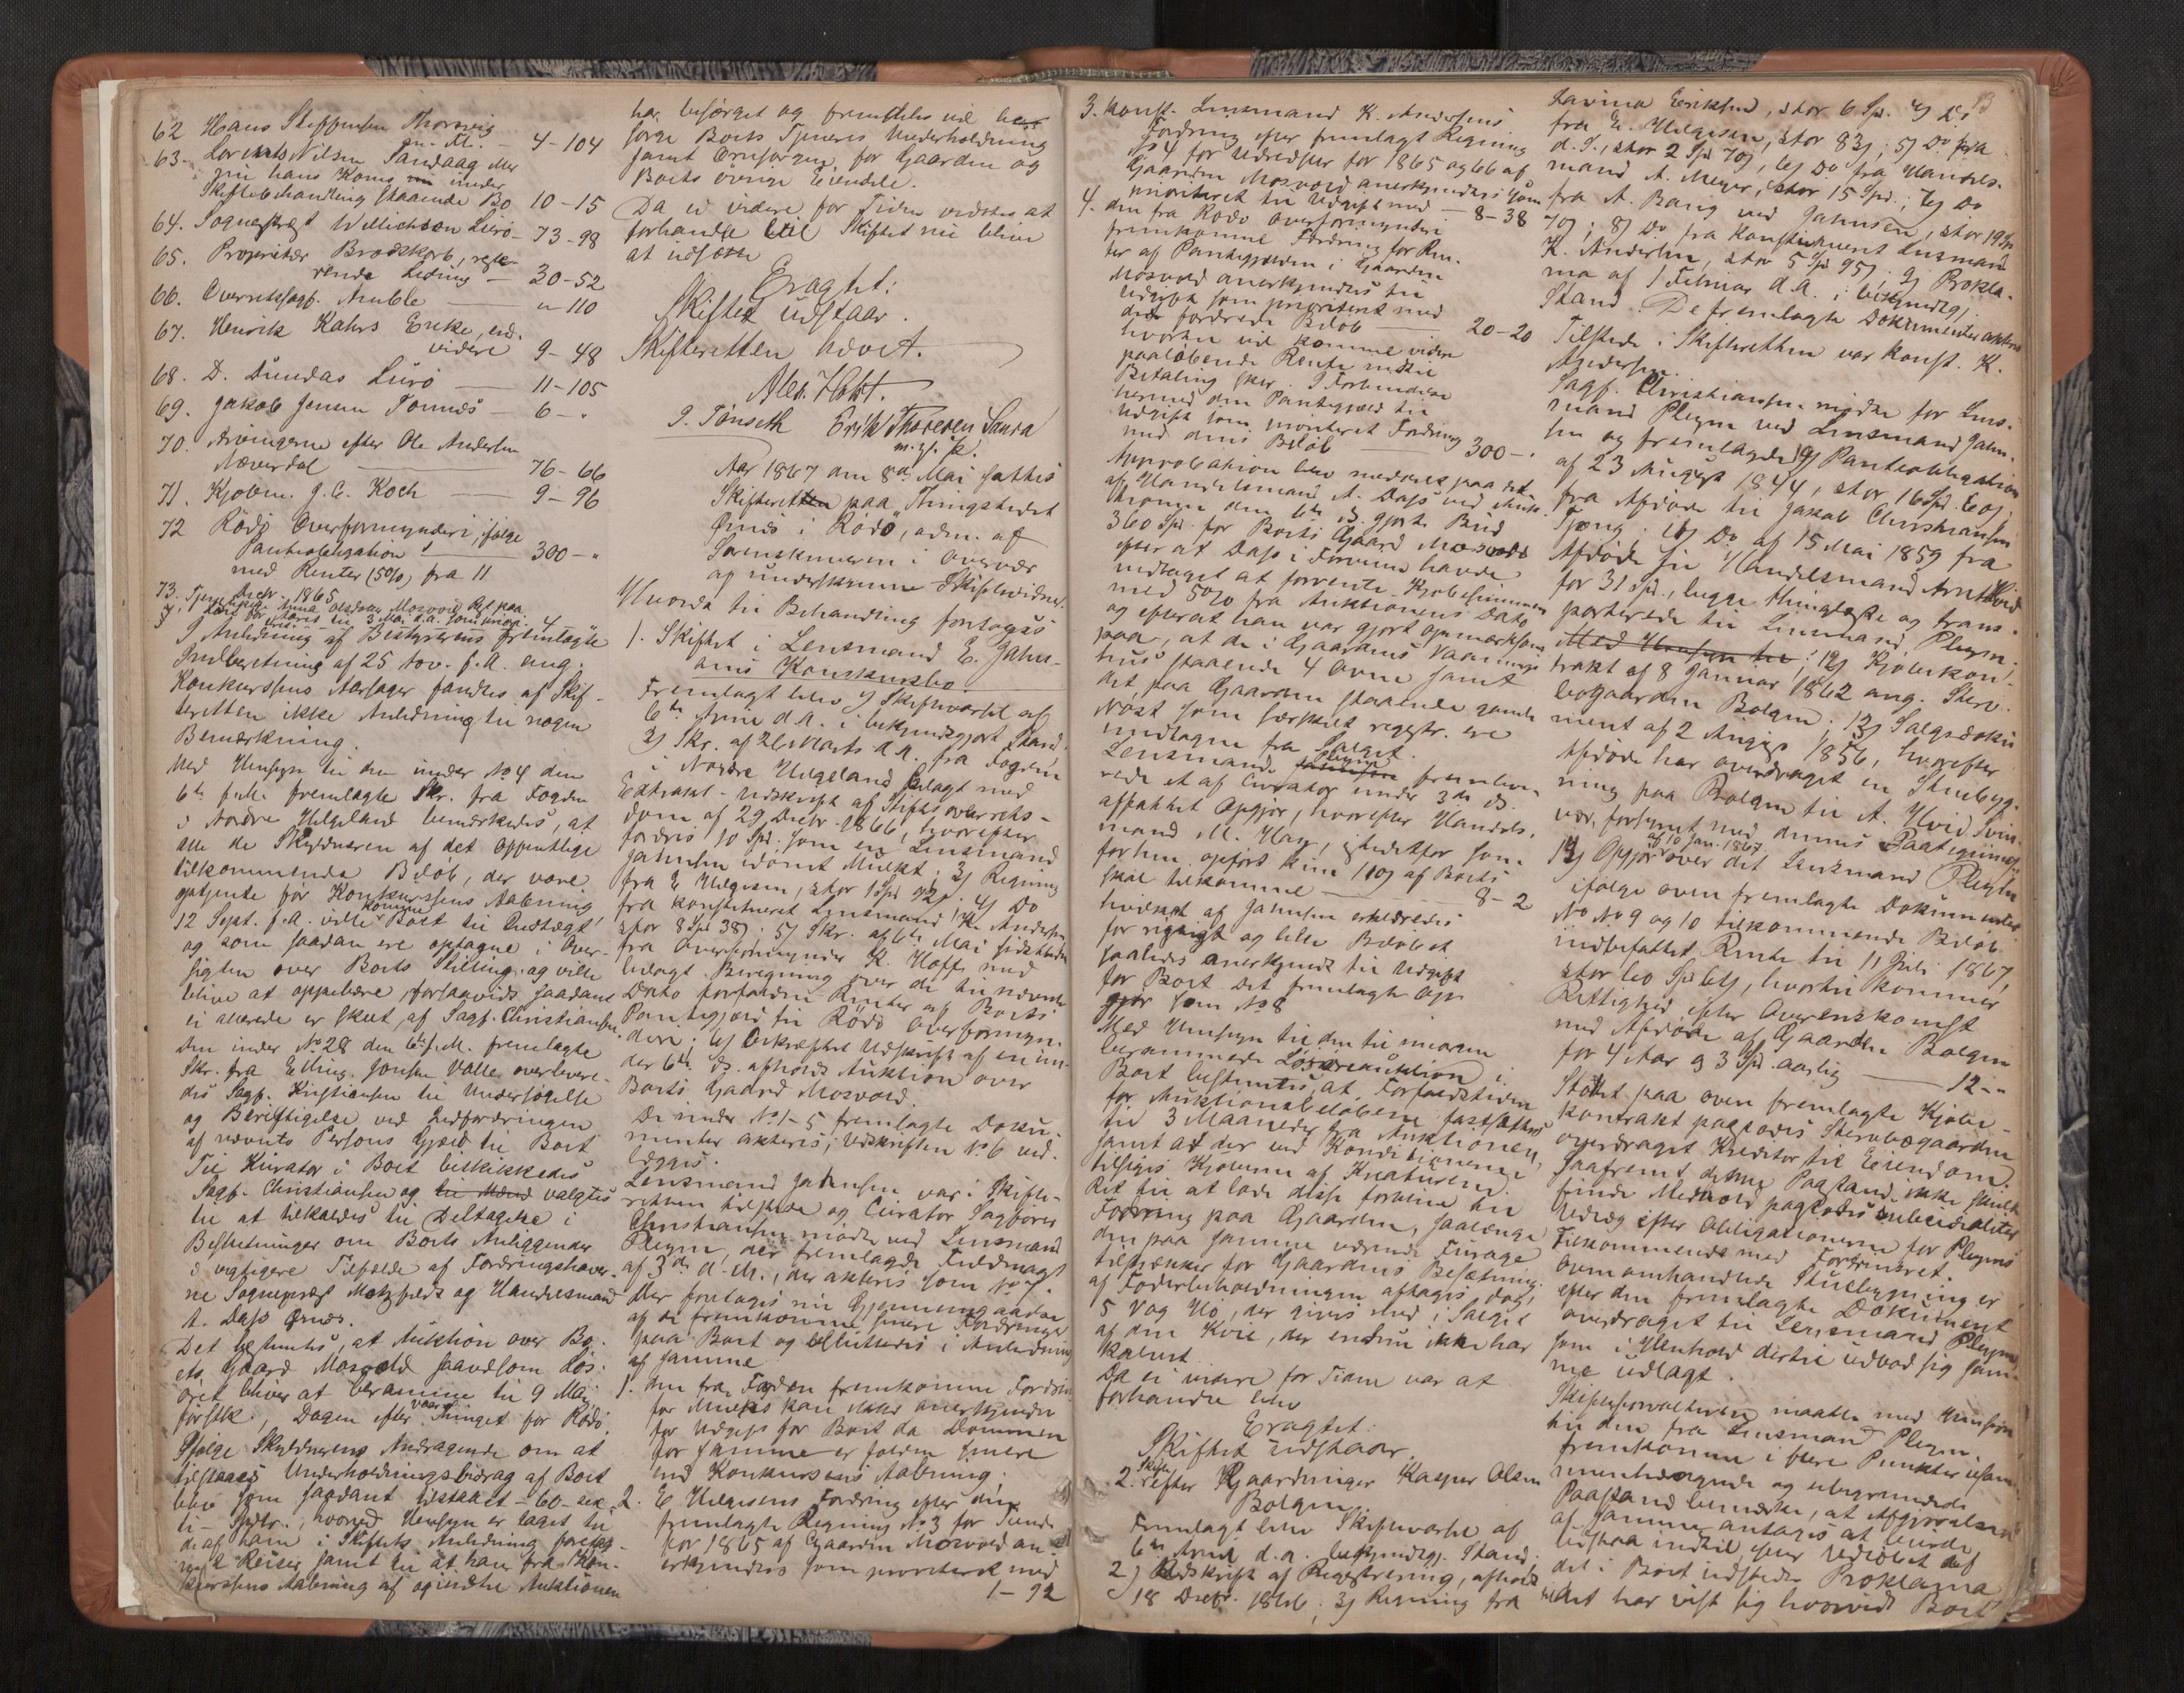 62 Hans Steffensen Thorsvig
gn. Fl. - 4-104
63. Lorents Nilsen Sandaag Mer
gru hans Kones under
Skiftebehandling staaende Bo 10-15
64. Sogneprest Wellichson Lurö 73-98
65. Proprietær Brodtkorb, reste-
rende Leding - 30-52
66. Overretssagf. Aubble — "-110
67. Henrik Kahrs Enke, end.
videre 9-48
68. D. Dundas Lurö — 11-105
69. Jakob Jensen Tonnes - 6-"
70. Arvingerne efter Ole Andersen
Næverdal — 76-66
71. Kjøbm. J. C. Koch — 9-96
72 Rödö Overformynderi, ifølge
Pantobligation — 300-"
med Renter (5%) fra 11
Decbr. 1865
73. Tjenestepige Anna Olsdatter Mosvold
I Anledning af Bestyrerens fremlagte
Indberetning af 25 Nov. f.A. ang.
Konkurssens Aarsager fandtes af Skif-
teretten ikke Anledning til nogen
Bemærkning.
Med Hensyn til den under No 4 den
6te f.M. fremlagte Skr. fra Fogden
i Nordre Helgeland bemærkedes, at
alle de Skyldneren af det offentlige
tilkommende Beløb, der vare
optjente før Konkurssens Aabning
12 Sept. f.A. ville komme Boet til Indtægt
og som saadan ere optagne i Over-
sigten over Boets Stilling, og ville
blive at oppebære, forsaavidt saadant
ei allerede er skeet, af Sagf. Christiansen.
Den under No 28 den 6te f.M. fremlagte
Skr. fra Elling Jonsen Valle overlevere-
des Sagf. Kristiansen til Undersøgelse
og Berigtigelse ved Indfordringen
af nævnte Persons Gjæld til Boet
Til Kurator i Boet beskikkedes
Sagf. Christiansen og valgtes
til at tilkaldes til Deltagelse i
Beslutninger om Boets Anliggender
i vigtigere Tilfælde af Fordringshaver-
ne Sogneprest Motzfeldt og Handelsmand
A. Dass Ørnes.
Det besluttes, at Auktion over Bo-
ets Gaard Mosvold saavelsom Løs-
øret bliver at beramme til 9 Mai
førstk., Dagen efter Vaar Thinget for Rödö.
Ifølge Skyldnerens Andragende om at
tilstaaes Underholdningsbidrag af Boet
blev som saadant tilstaaet - 60 - sex-
ti - Spdlr., hvorved Hensyn er taget til
de af ham i Skiftets Anledning foretag-
ne Reiser samt til at han fra Kon-
kurssens Aabning af og indtil Auktionen
har besørget og fremdeles vil be-
sørge Boets Tjeneres Underholdning
samt Omsorgen for Gaarden og
Boets øvrige Eiendele.
Da ei videre for Tiden vidstes at
forhandle blev Skiftet nu bliver
at udsætte
Eragtet:
Skiftet udstaar.
Skifteretten hævet.
Alex. Holst.
P. Tønseth Erik Thoresen Saura
m. p. P.
Aar 1867 den 8de Mai sattes
Skifteretten paa Thingstedet
Ørnes i Rödö, adm. af
Sorenskriveren i Overvær
af underskrevne Skiftevidner.
Hvorda til Behandling foretoges
1. Skiftet i Lensmand E. Jahn-
sens Konkursbo.
Fremlagt blev 1) Skiftevarsel af
6te April d.A. i bekjendtgjort Stand.
2) Skr. af 26 Marts d.A. fra Fogden
i Nordre Helgeland bilagt med
Extrakt-Udskrift af Stiftsoverrets-
dom af 29 Decbr. 1866, hvorefter
fordres 10 Spd. som en Lensmand
Jahnsen idømt Mulkt; 3) Regning
fra E. Helgesen, stor 1 Spd 92; 4) Do
fra konstitueret Lensmand K. Andersen
stor 8 Spd 38; 5) Skr. af 6te Mai sidstleden
fra Overformynder K. Hoff, med
bilagt Beregning over de til nævnte
Dato forfaldne Renter af Boets
Pantegjæld til Rödö Overformyn-
deri; 6) Bekræftet Udskrift af en un-
der 6te ds. afholdt Auktion over
Boets Gaard Mosvold.
De under No 1-5 fremlagte Doku-
menter akteres; Udskriften No 6 ved-
lægges.
Lensmand Jahnsen var i Skifte-
retten tilstede og Curator Sagfører
Christiansen mødte ved Lensmand
Pleym, der fremlagde Fuldmagt
af 3de d.M., der akteres som No 7.
Der foretoges nu Gjennemgaaelse
af de fremkomne senere Fordringer
paa Boet og besluttedes i Anledning
af samme
1. Den fra Fogden fremkomne Fordring
for Mulkt kan ikke anerkjendes
for Udgift for Boet da Dommen
for samme er falden senere
end Konkurssens Aabning.
2. E. Helgesens Fordring efter den
fremlagte Regning No 3 for Tiende
for 1865 af Gaarden Mosvold an-
erkjendtes som prioriteret med
1-92
3. Konst. Lensmand K. Andersens
Fordring efter fremlagt Regning
No 4 for Udredsler for 1865 og 66 af
Gaarden Mosvold anerkjendtes som
prioriteret til Udgift med - 8-38
4. Den fra Rödö Overformynderi
fremkomne Fordring for Ren-
ter af Pantegjælden i Gaarden
Mosvold anerkjendtes til
Udgift som prioriteret med
det fordrede Beløb — 20-20
hvortil vil komme videre
paaløbende Rente indtil
Betaling sker. I Forbindelse
hermed den Pantegjæld til
Udgift som prioriteret Fordring
med dens Beløb — 300-"
Approbation blev meddelt paa det
af Handelsmand A. Dass ved Auk-
tionen den 6te ds. gjorte Bud
360 Spd. for Boets Gaard Mosvold
efter at Dass i Forveien havde
vedtaget at forrente Kjøbesummen
med 5% fra Auktionens Dato
og efterat han var gjort opmærksom
paa, at de i Gaardens Vaanings-
hus staaende 4 Ovne samt
det, paa Gaarden staaende gamle
Nøst som særskilt registr. ere
undtagne fra Salget.
Lensmand Pleym fremleve-
rede et af Curator under 3de ds.
affattet Opgjør, hvorefter Handels-
mand M. Hay, istedetfor som
før hen opført kun 110 af Boets
skal tilkomme — 8-2
hvilket af Jahnsen erklæredes
for rigtigt og blev Beløbet
saaledes anerkjendt til Udgift
for Boet. Det fremlagte Op-
gjør som No 8
Med Hensyn til den til imorgen
berammede Løsøreauktion i
Boet bestemtes, at Forfaldstiden
for Auktionsbeløbene fastsættes
til 3 Maaneder fra Auktionen,
samt at der ved Konditionerne
tilsiges Kjøberne af Kreaturene
Ret til at lade disse forblive til
Fodring paa Gaarden, saalænge
den paa samme værende Furage
tilstrækker for Gaardens Besætning.
af Foderbeholdningen aftages dog
5 Vog Hø, der gives med i Salget
af den Kvie, der endnu ikke har
kalvet.
Da ei videre for Tiden var at
forhandle blev
Eragtet:
Skiftet udstaar.
2. Skifte efter Gaardbruger Kasper Olsen
Bolgen.
Fremlagt blev Skiftevarsel af
6te April d.A. bekjendtgj. Stand.
2) Udskrift af Registrering, afholdt
18 Decbr. 1866; 3) Regning fra
13
Lavina Eriksen, stor 6 Spd. 4) Do
fra E. Helgesen, stor 83; 5) Do fra
d.S., stor 2 Spd 70; 6) Do fra Handels-
mand A. Meyer, stor 15 Spd.; 7) Do
fra A. Barig ved Jahnsen, stor 19 Spd
70; 8) Do fra Konstitueret Lensmand
K. Andersen, stor 5 Spd 95; 9) Prokla-
ma af 1 Februar d.A. i bekjendtgj.
Stand. De fremlagte Dokumenter akteres
Tilstede i Skifteretten var Konst. K.
Andersen.
Sagf. Christiansen mødte for Lens-
mand Pleym ved Lensmand Jahn-
sen og fremlagde 10) Pantobligation
af 23 August 1844, stor 16 Spd. 60
fra Afdøde til Jakob Christiansen
Tjong; 11) Do af 15 Mai 1859 fra
Afdøde til Handelsmand Arnt Hvid
for 31 Spd., begge thinglæste og trans-
porterede til Lensmand Pleym.
Med Hensyn til; 12) Kjøbekon-
trakt af 8 Januar 1862 ang. Sterv-
bogaarden Bolgen; 13) Salgsdoku-
ment af 2 August 1856, hvorefter
Afdøde har overdraget en Stuebyg-
ning paa Bolgen til A. Hvid Svin-
vær, forsynet med dennes Paategning
af 10 Jan. 1867
14) Opgjør over det Lensmand Pleym
ifølge oven fremlagte Dokumenter
No No 9 og 10 tilkommende Beløb
indbefattet Rente til 11 Juli 1867,
stor 60 Spd 64, hvortil kommer
Rettighed efter Overenskomst
med Afdøde af Gaarden Bolgen
for 4 Aar a 3 Spd. aarlig — 12-"
Støttet paa oven fremlagte Kjøbe-
kontrakt paastodes Stervbogaarden
overdraget Kreditor til Eiendom.
Saafremt denne Paastand ikke skulde
finde Medhold paastodes subsidialiter
Udlæg efter Obligationerne for Pleyms
Tilkommende med Fortrinsret.
Ovenomhandlede Stuebygning er
efter den fremlagte Dokument
overdraget til Lensmand Pleym,
som i Henhold dertil udbad sig sam-
me udlagt.
Skifteforvalteren maatte med Hensyn
til den fra Lensmand Pleym
fremkomne i flere Punkter usam-
menhængende og ubegrundede
Paastand bemærke, at Afgjørelsen
af samme antages at burde
udstaa indtil efter Udløbet af
det i Boet udstedte Proklama
idet har vist sig hvorvidt Boet